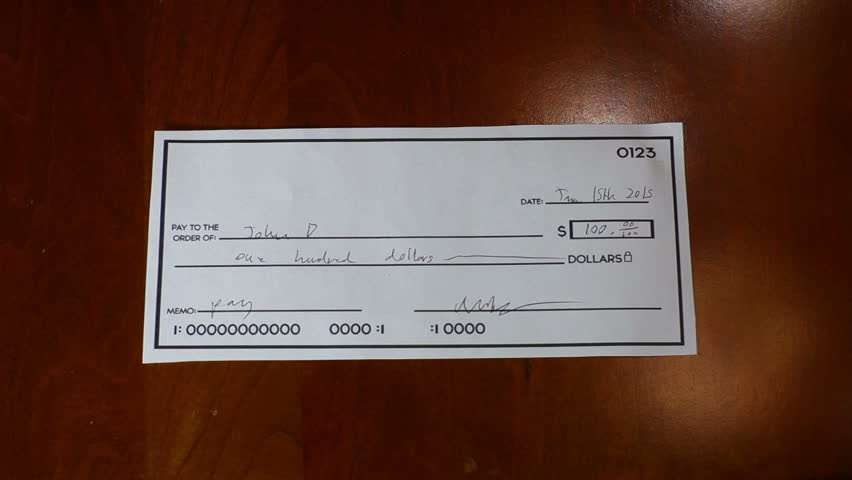 0123
DATE: 15th 2015
PAY TO THE
ORDER OF: John D $ 100. 00/100
one hundred dollars DOLLARS
MEMO: pay
|: 00000000000 0000 :| :| 0000